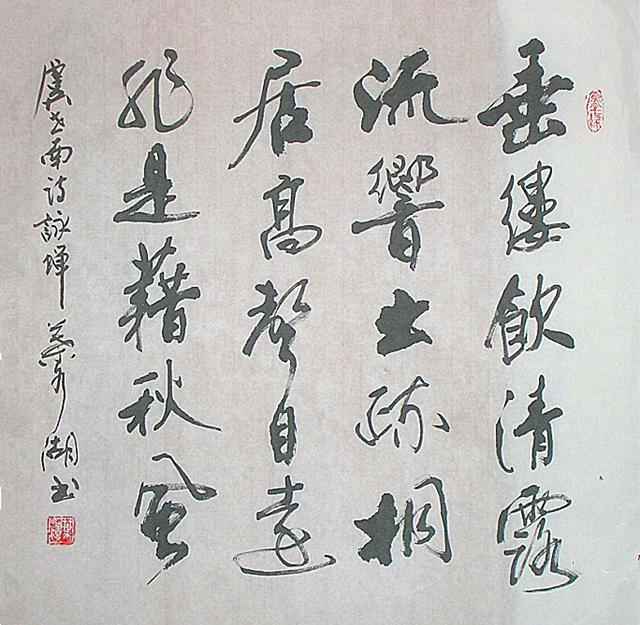 垂縷飲清露
流響出疏桐
居高聲自遠
非是藉秋風
虞世南詩詠蟬 湖书